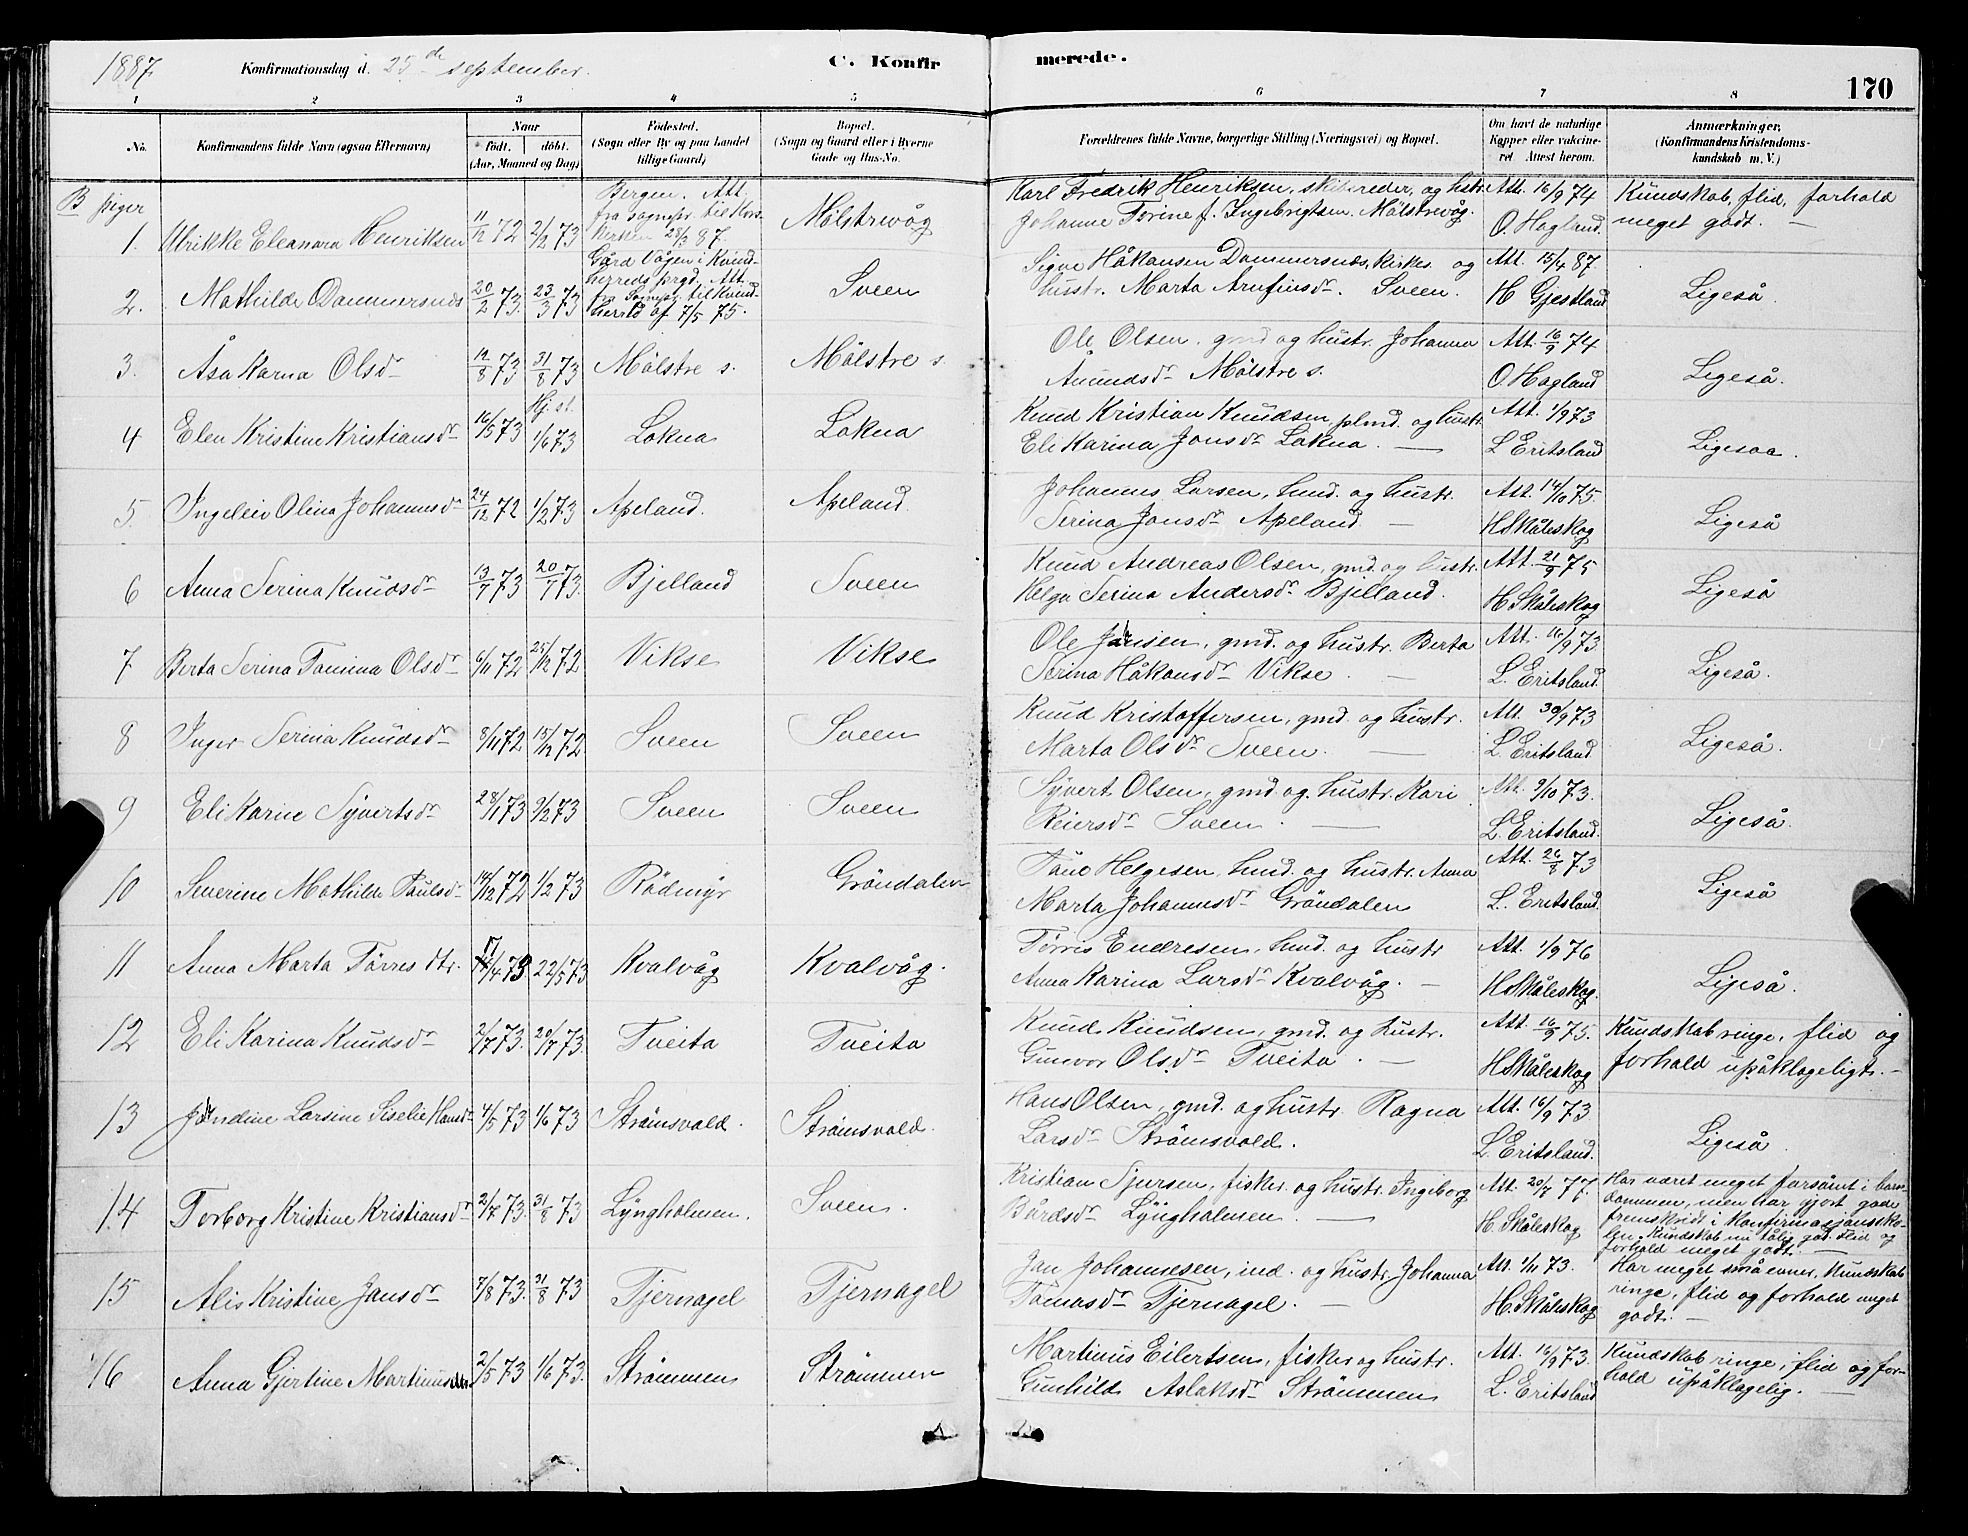 1887
Konfirmationsdag d. 25de september.
C. Konfir
merede.
170
1 2 3 4 5 6 7 8
No.
Konfirmandens fulde Navn (ogsaa Efternavn)
Naar
født. døbt.
(Aar, Maaned og Dag)
Fødested.
(Sogn eller By og paa Landet
tillige Gaard)
Bopæl.
(Sogn og Gaard eller i Byerne
Gade og Hus-No.
Forældrenes fulde Navne, borgerlige Stilling (Næringsvei) og Bopæl.
Om havt de naturlige
Kopper eller vakcine-
ret Attest herom.
Anmærkninger,
(Konfirmandens Kristendoms-
kundskab m. V.)
B piger
Bergen. Att.
fra sognepr. til Kors-
kirken 28/3 87.
1. Ulrikke Eleanora Henriksen 11/12 72 2/2 73 Mölstrevåg
Karl Fredrik Henriksen, skibsreder, og hstr. Att. 16/9 74 Kundskab, flid, forhold
Johanne Torine f. Ingebrigtsen. Mölstrevåg. O. Hagland. meget godt. —
Gård Vågen i Kvind-
herreds prgd. Att.
fra Sognepr. til Kvind-
herred af 7/5 75.
2. Mathilde Dommersnes 20/2 73. 23/3 73 Sveen
Signe Håkonsen Dommersnes, kirkes. og Att. 15/4 87.
hustr. Marta Arnfinsdr. Sveen. H Gjestland Ligeså.
3. Åsa Karna Olsdr 12/8 73 31/8 73 Mölstre s. Mölstre s.
Ole Olsen, gmd og hustr. Johanna Att. 16/9 74
Åmundsdr Mölstre s. O. Hagland Ligeså.
Hj. st.
4 Elen Kristine Kristiansdr 16/5 73 1/6 73 Lokna Lokna
Knud Kristian Knudsen plmd. og hustr. Att. 1/9 73
Eli Karina Jonsdr Lokna. — L Eritsland Ligesaa.
5. Ingeleiv Olina Johannesdr 24/12 72 1/2 73 Apeland. Apeland
Johannes Larsen, hmd. og hustr. Att. 14/10 75.
Serina Jonsdr Apeland — H Skåleskog Ligeså
6 Anna Serina Knudsdr 13/7 73 20/7 73. Bjelland Sveen
Knud Andreas Olsen, gmd og hustr. Att. 21/9 75
Helga Serina Andersdr Bjelland. H. Skåleskog Ligeså
7 Berta Serina Tomina Olsdr 6/11 72 25/12 72 Vikse Vikse
Ole Jansen, gmd. og hustr. Berta Att. 16/9 73
Serina Håkonsdr Vikse. — L. Eritsland. Ligeså.
8 Inger Serina Knudsdr 8/11 72 15/12 72 Sveen Sveen
Knud Kristoffersen, gmd. og hustr. Att. 30/9 73
Marta Olsdr Sveen. — L. Eritsland Ligeså.
9 Eli Karine Syvertsdr 28/1 73 9/2 73 Sveen Sveen
Syvert Olsen, gmd og. hustr. Kari Att. 9/10 73.
Reiersdr Sveen. — L. Eritsland. Ligeså.
10 Severine Mathilde Paulsdr 14/12 72 1/2 73 Rödmyr Gröndalen
Helgesen, hmd. og hustr. Anna Att. 26/8 73
Marta Johannesdr Gröndalen L. Eritsland. Ligeså
11 Anna Marta Tørresdtr. /4 73 22/5 73 Kvalvåg Kvalvåg.
Tørris Endresen, hmd. og hustr Att. 1/9 76
Anna Karina Larsdr Kvalvåg. — H. Skåleskog. Ligeså.
12 Eli Karina Knudsdr 2/7 73. 20/7 73 Tveita Tveita
Knud Knudsen, gmd. og hustr. Att. 16/9 75. Kundskab ringe, flid og
Gunvor Olsdr Tveita. — H Skåleskog forhold upåklageligt. —
13 Jondine Larsine Siselie Hansdr 4/5 73 1/6 73 Strömsvold. Strömsvold.
Hans Olsen, gmd. og hustr Ragna Att. 16/9 73
Larsdr Strömsvold. L. Eritsland. Ligeså
14 Torborg Kristine Kristiansdr 2/7 73. 31/8 73 Lyngholmen. Sveen.
Kristian Sjursen, fisker og hustr. Ingeborg Att. 20/7 77. Har været meget forsömt i barn-
Bårdsdr Lyngholmen. — H. Skåleskog dommen, men har gjort gode
fremskridt i konfirmasjonssko-
len. Kundskab nu tålig god. Flid og
forhold meget godt. —
15 Alis Kristine Jansdr 7/8 73. 31/8 73 Tjernagel Tjernagel
Jan Johannesen, ind. og hustr. Johanna Att. 1/11 73. Har meget små evner, Kundskab
Tomasdr Tjernagel. — H. Skåleskog ringe, flid og forhold meget
godt. —
16 Anna Gjertine Martinusdtr 2/5 73 1/6 73. Strömmen Strömmen
Martinus Eilertsen, fisker og hustr. Att. 16/9 73. Kundskab ringe, flid og for-
Gunhild Aslaksdr Strömmen L. Eritsland hold upåklagelig. —